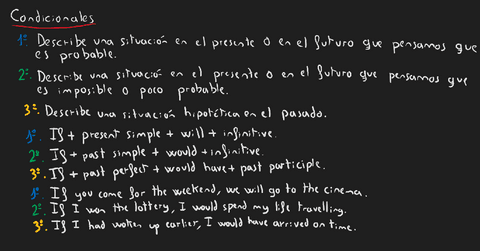 Condicionales
1º. Describe una situación en el presente o en el futuro que pensamos que
es probable.
2º. Describe una situación en el presente o en el futuro que pensamos que
es imposible o poco probable.
3º. Describe una situación hipotética en el pasado.
1º. If + present simple + will + infinitive.
2º. If + past simple + would + infinitive.
3º. If + past perfect + would have + past participle.
1º. If you come for the weekend, we will go to the cinema.
2º. If I won the lottery, I would spend my life travelling.
3º. If I had woken up earlier, I would have arrived on time.